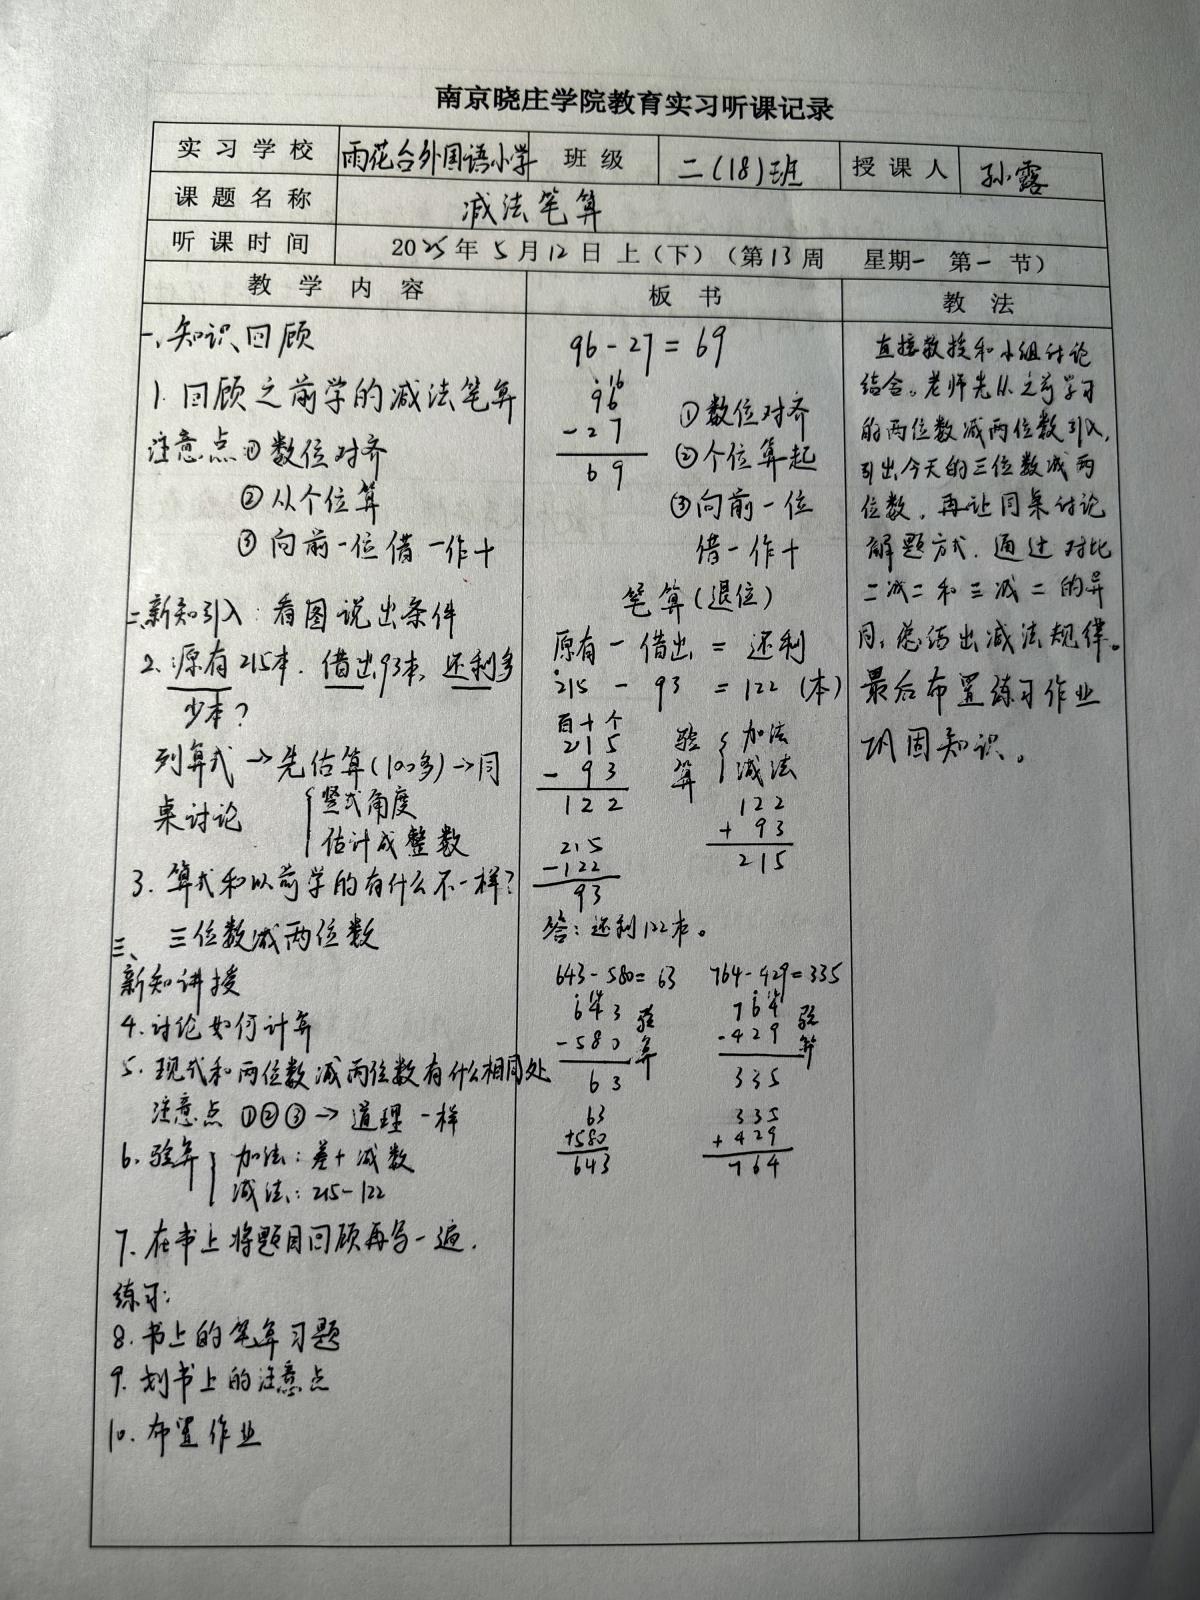 南京晓庄学院教育实习听课记录
实习学校 雨花台外国语小学 班级 二(18)班 授课人 孙露
课题名称 减法笔算
听课时间 2025年5月12日 上(下)(第13周 星期一 第一节)
教学内容 板书 教法
一、知识回顾
1. 回顾之前学的减法笔算
注意点①数位对齐
②从个位算
③向前一位借一作十
二、新知引入:看图说出条件
2. 原有215本. 借出93本, 还剩多
少本?
列算式→先估算(100多)→同
桌讨论
竖式角度
估计成整数
3. 算式和以前学的有什么不一样?
三位数减两位数
三、
新知讲授
4. 讨论如何计算
5. 现式和两位数减两位数有什么相同处
注意点①②③→道理一样
6. 验算 加法:差+减数
减法:215-122
7. 在书上将题目回顾再写一遍.
练习:
8. 书上的笔算习题
9. 划书上的注意点
10. 布置作业
96-27=69
16
96
-27
69
①数位对齐
②个位算起
③向前一位
借一作十
笔算(退位)
原有-借出=还剩
215-93=122(本)
百十个
215
-93
122
215
-122
93
验算 加法
减法
122
+93
215
答:还剩122本。
643-580=63
14
643
-580
63
验算
63
+580
643
764-429=335
14
764
-429
335
验算
335
+429
764
直接教授和小组讨论
结合。老师先从之前学习
的两位数减两位数引入,
引出今天的三位数减两
位数, 再让同桌讨论
解题方式. 通过对比
二减二和三减二的异
同, 总结出减法规律。
最后布置练习作业
巩固知识。